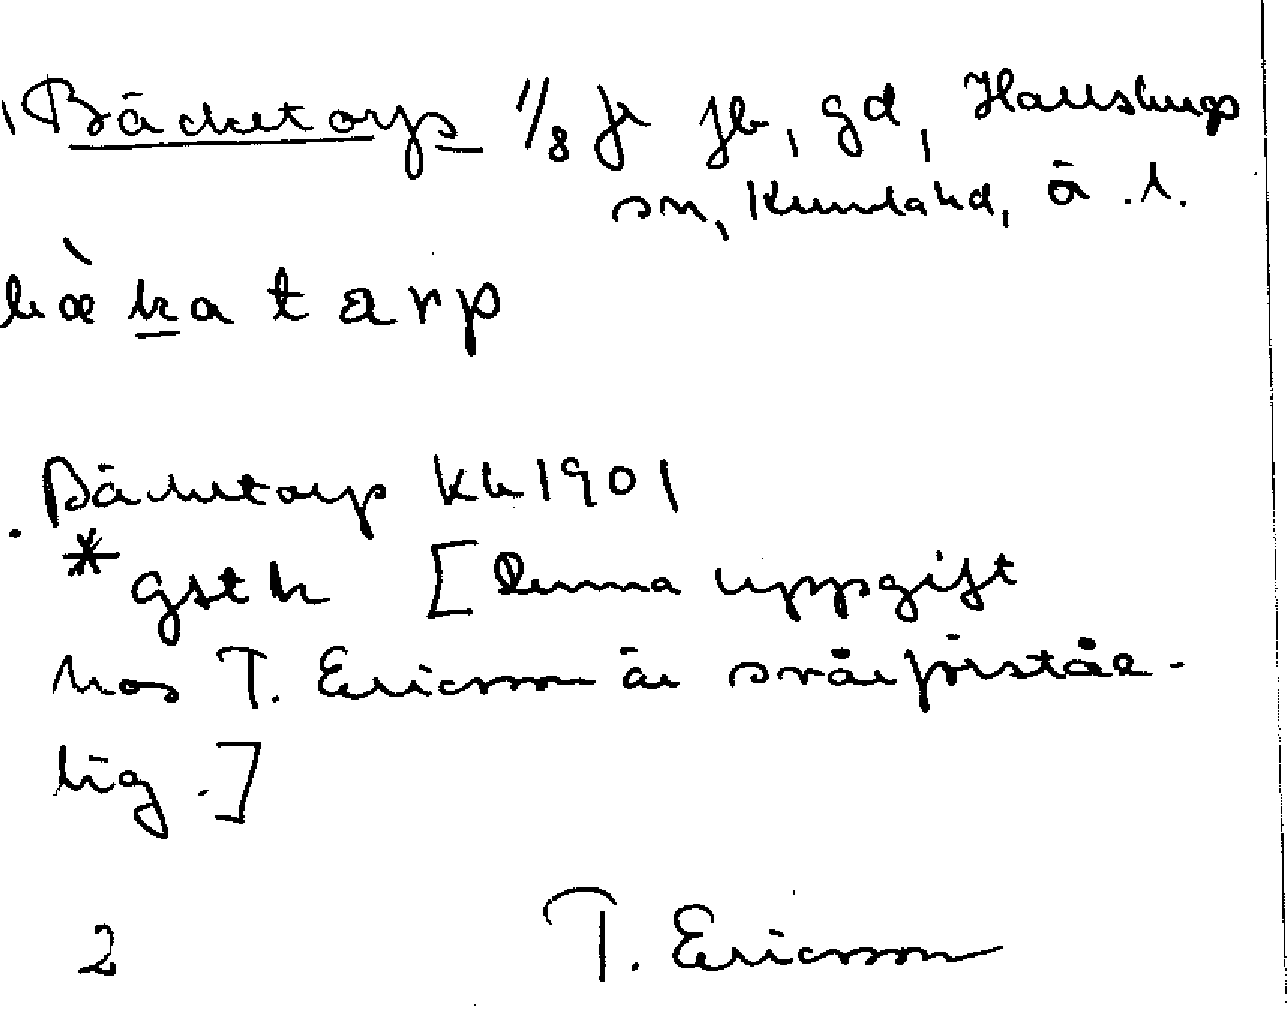 Bäcketorp 1/8 fr jb, gd, Hallsbergs
sn, Kumla hd, Ö.l.
bæ̀katarp
Bäcketorp kk 1901
* gstk [Denna uppgift
hos T. Ericsson är svårförståe-
lig.]
2 T. Ericsson